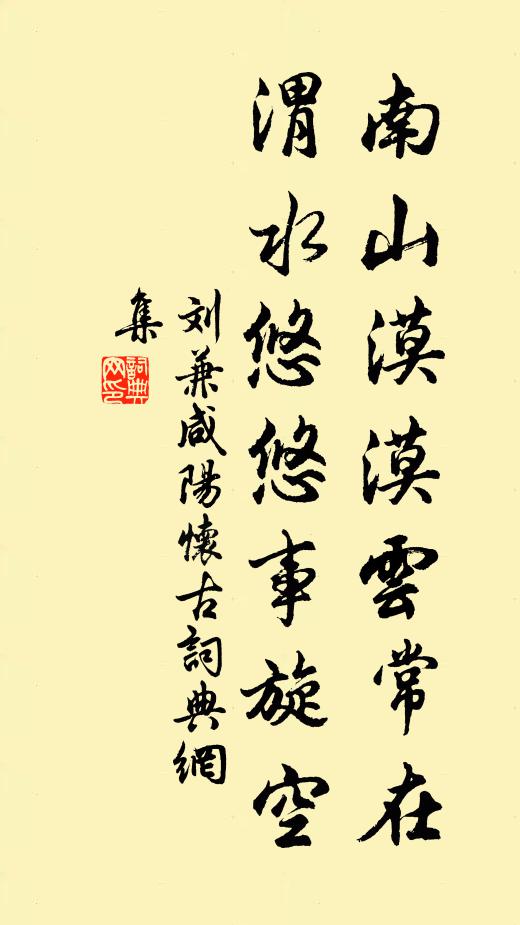 南山漠漠雲常在
渭水悠悠事旋空
刘兼咸陽懷古詞典網
集
詞典网印